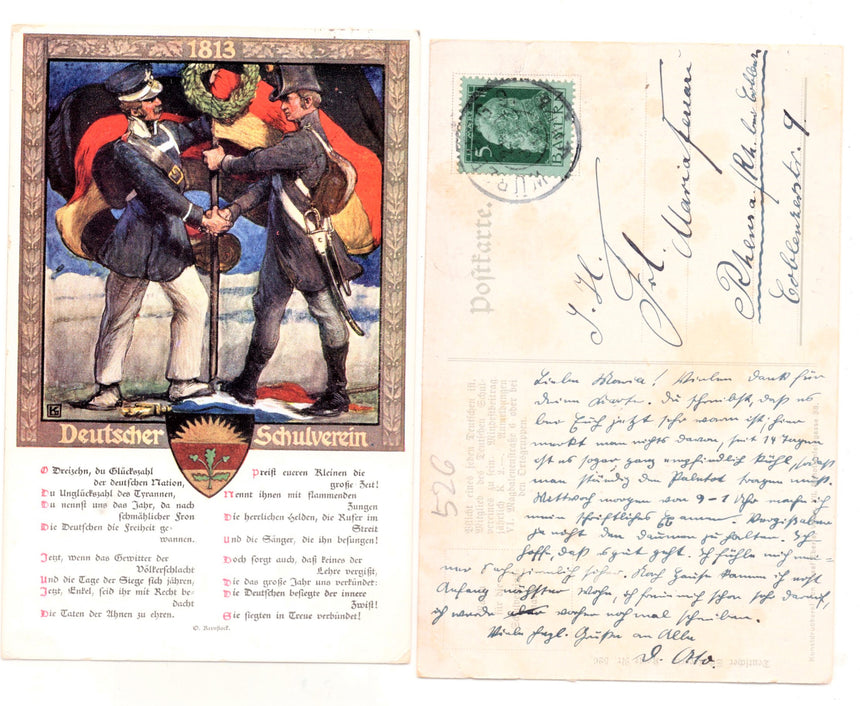 1813
Deutscher Schulverein
O Dreizehn, du Glückszahl
der deutschen Nation,
Du Unglückszahl des Tyrannen,
Du nennst uns das Jahr, da nach
schmählicher Fron
Die Deutschen die Freiheit ge-
wannen.
Jetzt, wenn das Gewitter der
Völkerschlacht
Und die Tage der Siege sich jähren,
Jetzt, Enkel, seid ihr mit Recht be-
dacht
Die Taten der Ahnen zu ehren.
Preist eueren Kleinen die
große Zeit!
Nennt ihnen mit flammenden
Zungen
Die herrlichen Helden, die Rufer im
Streit
Und die Sänger, die ihn besungen!
Doch sorgt auch, daß keines der
Lehre vergißt,
Die das große Jahr uns verkündet:
Die Deutschen besiegte der innere
Zwist!
Sie siegten in Treue verbündet!
O. Kernstock.
5
BAYERN
WÜRZ
Postkarte.
I. H.
Frl.
Maria Ferrari
Rhens a/Rh. bei Coblenz
Coblenzerstr. 9
526
Pflicht eines jeden Deutschen ist,
Mitglied des Deutschen Schul-
vereines zu sein. Mitgliedsbeitrag
jährlich K 2.—. Anmeldungen
VI. Magdalenenstraße 6 oder bei
den Ortsgruppen.
Liebe Maria! Vielen Dank für
deine Karte. Du schreibst, daß es
bei Euch jetzt sehr warm ist; hier
merkt man nichts davon, seit 14 Tagen
ist es sogar ganz empfindlich kühl, sodaß
man ständig den Paletot tragen muß.
Mittwoch morgen von 9-1 Uhr mache ich
mein schriftliches Examen. Vergiß aber
ja nicht den Daumen zu halten. Ich
hoffe, daß es gut geht. Ich fühle mich mei-
ner Sache ziemlich sicher. Nach Hause komme ich erst
Anfang nächster Woche, ich freue mich schon sehr darauf,
ich werde aber vorher noch mal schreiben.
Viele herzl. Grüße an Alle
D. Otto.